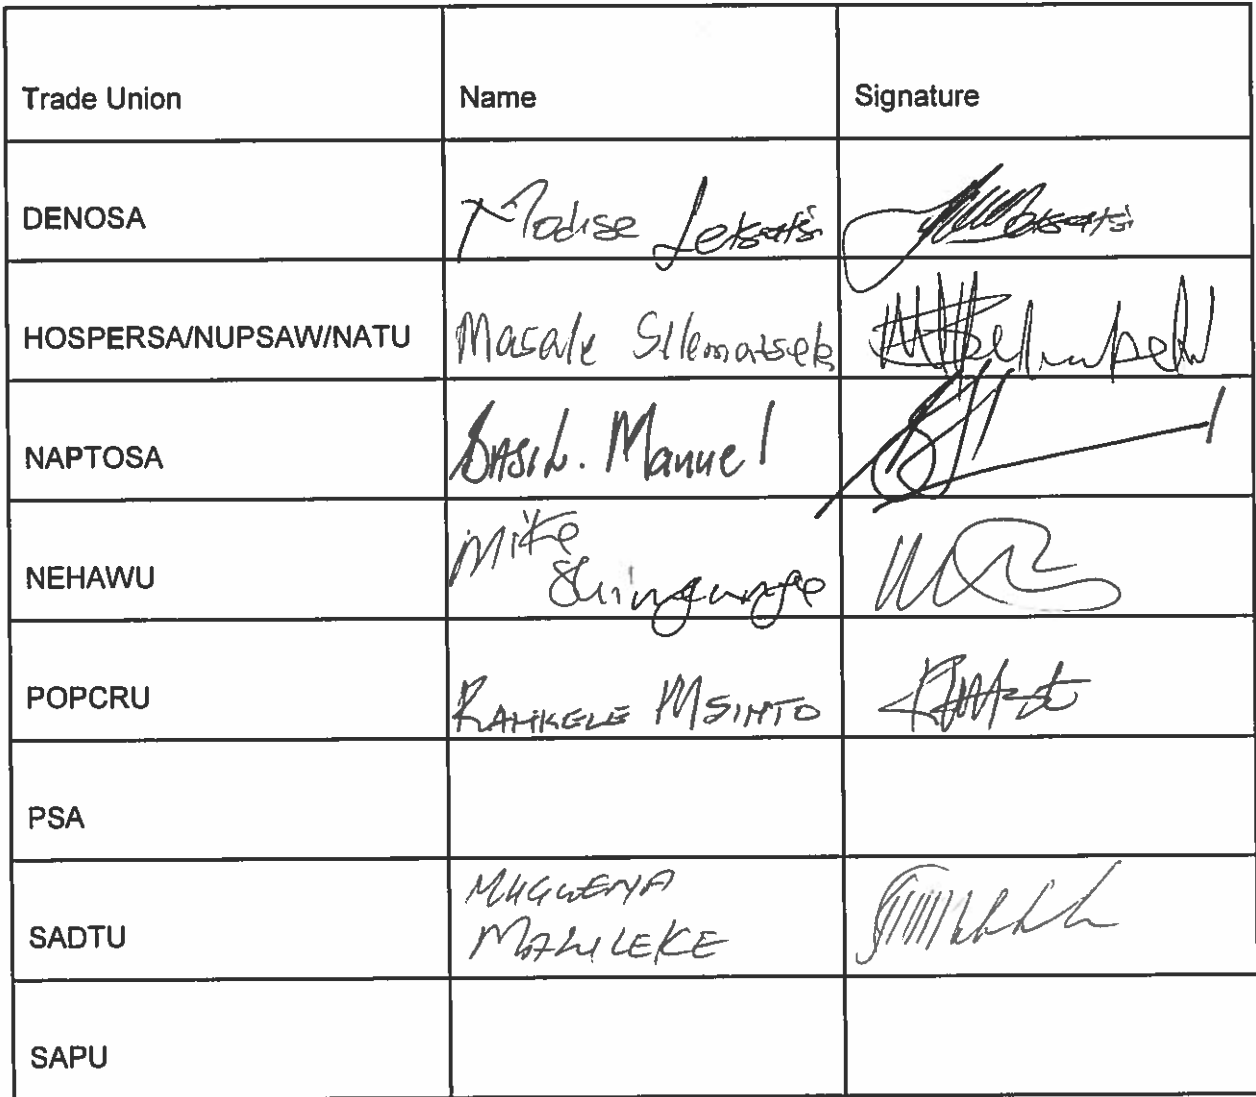 Trade Union Name Signature
DENOSA Modise Letsatsi
HOSPERSA/NUPSAW/NATU Masale
NAPTOSA BASIL. Manuel
NEHAWU Mike
Shingange
POPCRU MSINTO
PSA
SADTU MUGWENA
MALULEKE
SAPU